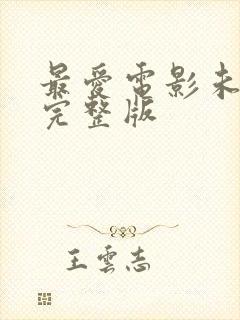 最爱電影未
完整版
王雲志